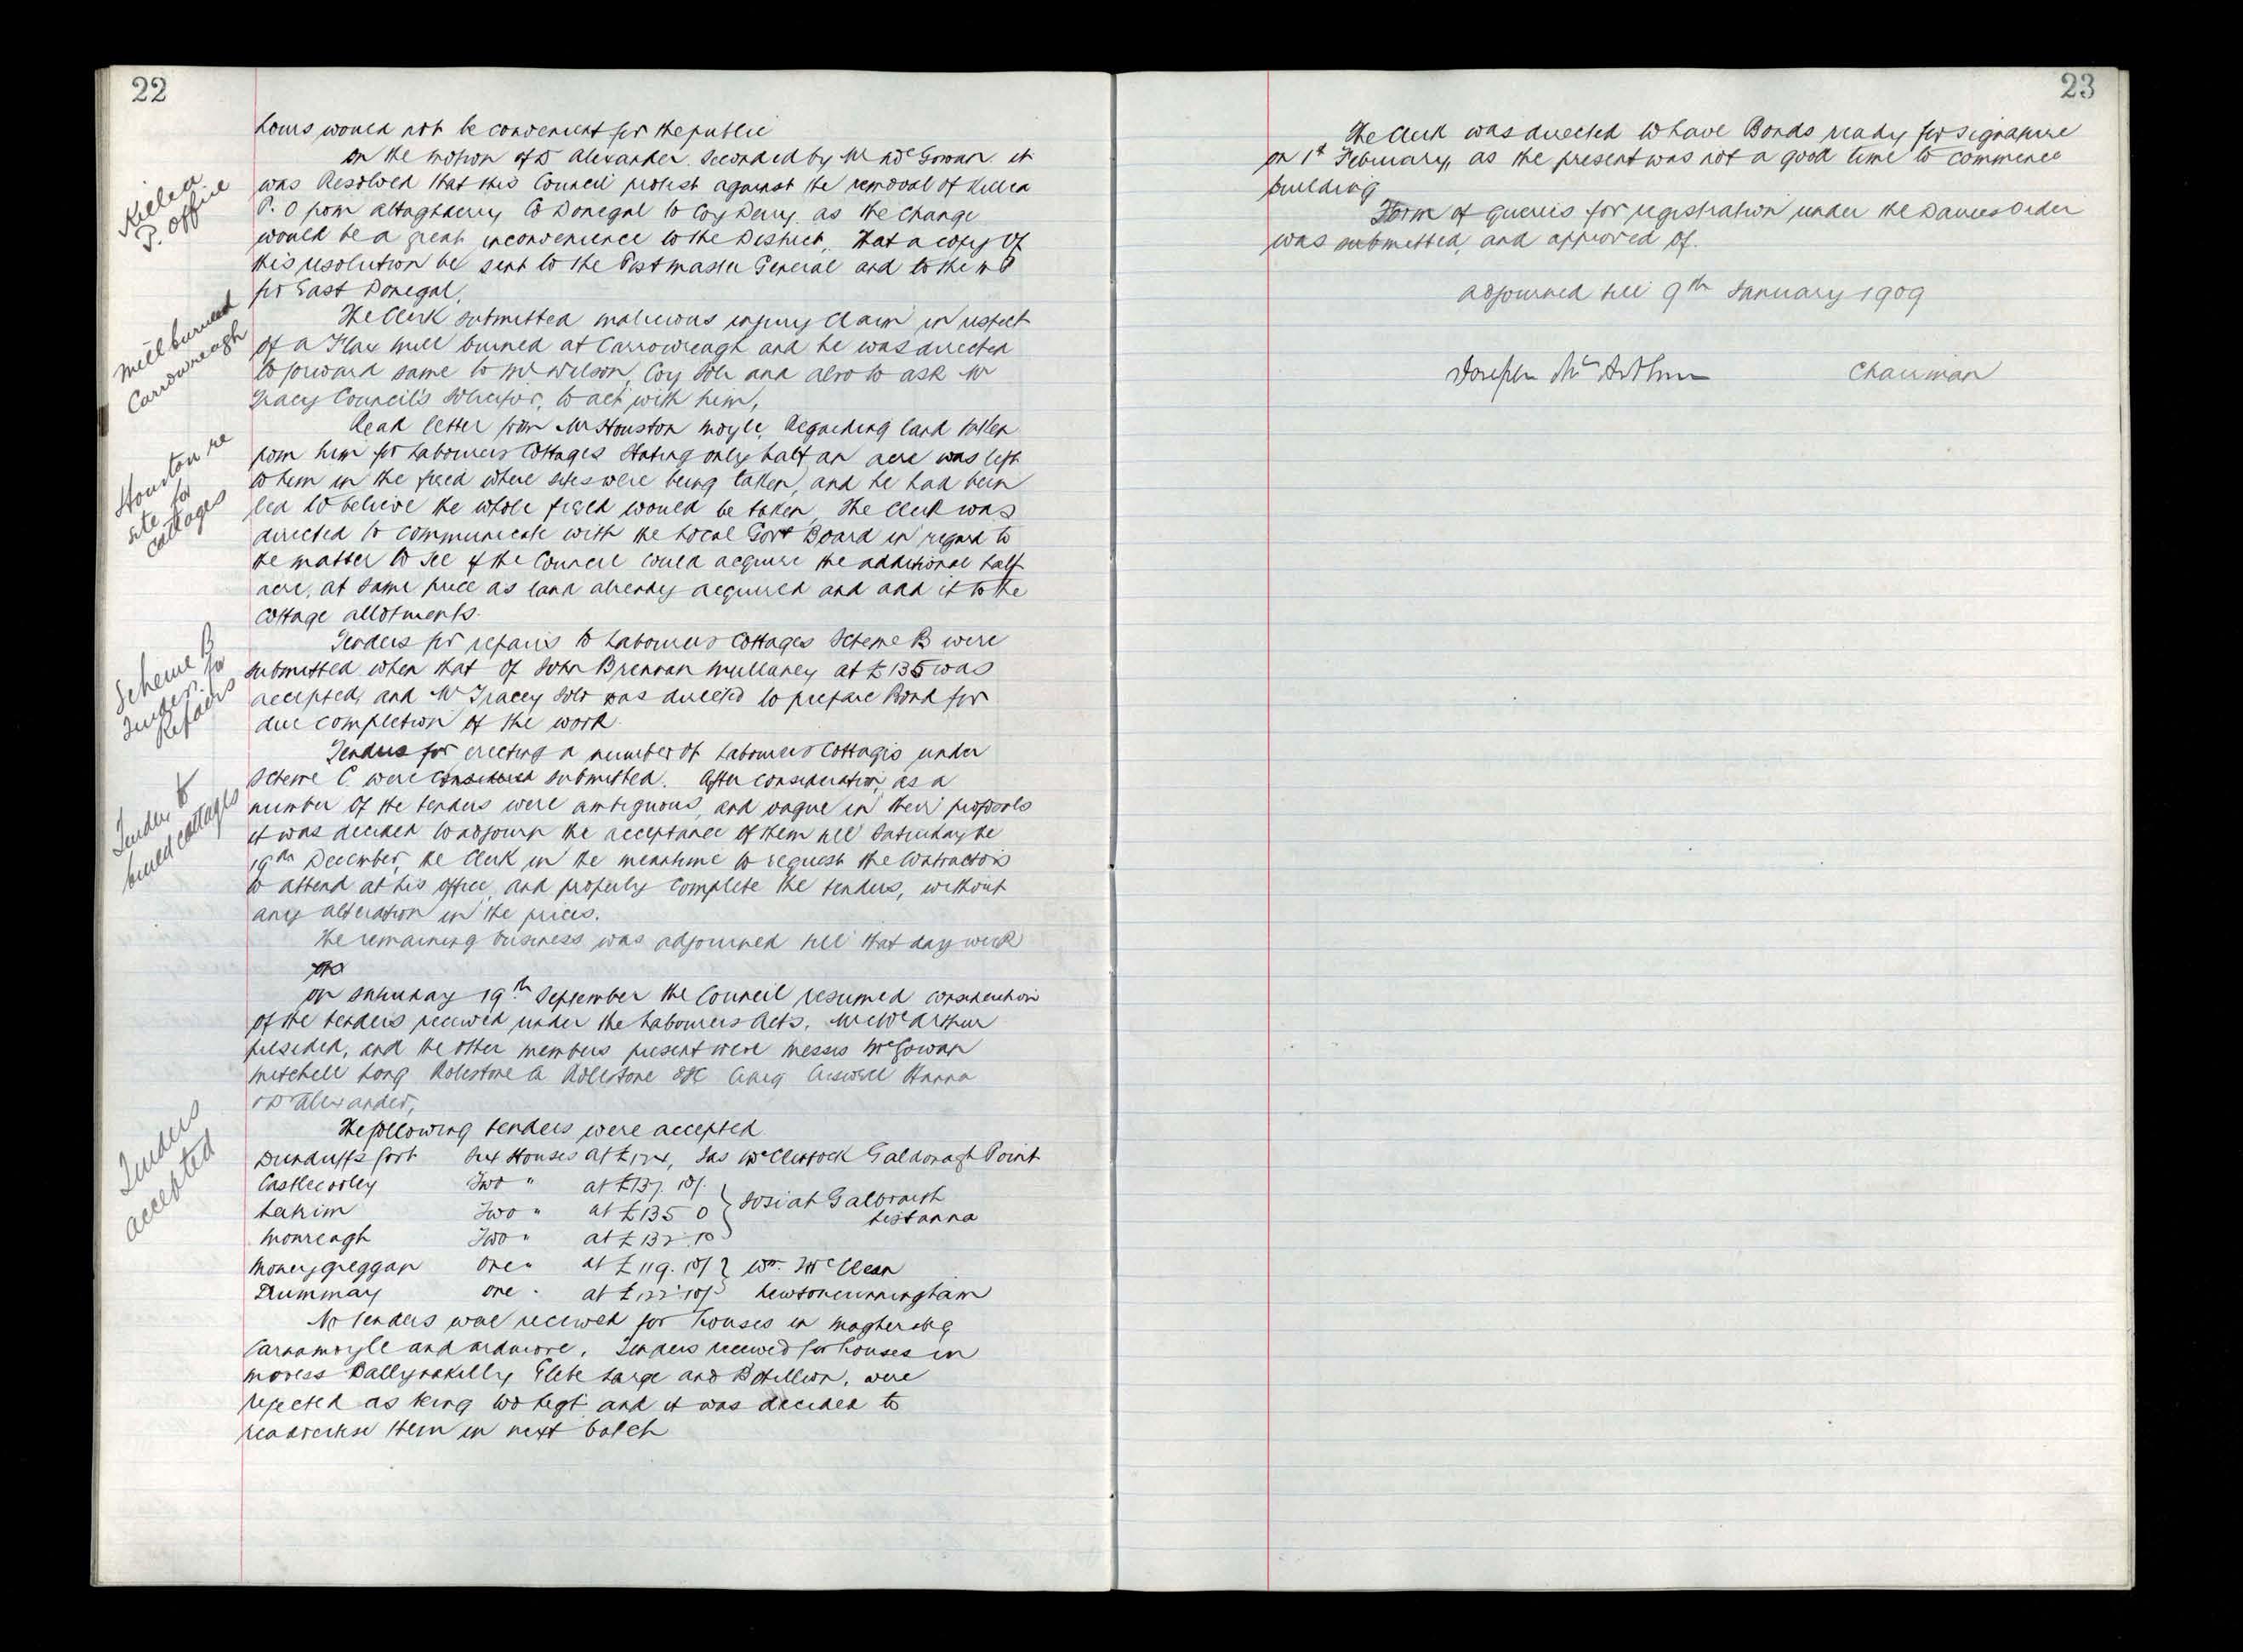 22
hours would not be convenient for the public
On the motion of D Alexander Seconded by Mr McGowan it
was Resolved that this Council protest against the removal of Killea
P. O from Altaghderry Co Donegal to Coy Derry as the change
would be a great inconvenience to the District. That a copy of
this resolution be sent to the Postmaster General and to the MP
for East Donegal.
Killea
P. Office
The Clerk submitted malicious injury claim in respect
of a Flax Mill burned at Carrowreagh and he was directed
to forward same to Mr Wilson, Coy Solr and also to ask Mr
Tracey Council's Solicitor, to act with him.
Mill burned
Carrowreagh
Read letter from Mr Houston Moyle, Regarding land taken
from him for Labourers Cottages Stating only half an acre was left
to him in the field where sites were being taken, and he had been
led to believe the whole field would be taken, The Clerk was
directed to communicate with the Local Govt Board in regard to
the matter to see if the Council could acquire the additional half
acre, at same price as land already acquired and add it to the
cottage allotments.
Houston re
site for
cottages
Tenders for repairs to Labourers Cottages Scheme B were
submitted when that of John Brennan Mullaney at £135 was
accepted, and Mr Tracey Solr was directed to prepare Bond for
due completion of the work
Scheme B
Tenders for
Repairs
Tenders for erecting a number of Labourers Cottages under
Scheme C were considered submitted. After consideration, as a
number of the tenders were ambiguous, and vague in their proposals
it was decided to adjourn the acceptance of them till Saturday the
19th December, the Clerk in the meantime to request the Contractors
to attend at his office, and properly complete the tenders, without
any alteration in the prices.
Tenders to
build cottages
The remaining business was adjourned till that day week
On Saturday 19th September the Council resumed consideration
of the tenders received under the Labourers Acts. Mr McArthur
presided, and the other members present were Messrs McGowan
Mitchell Long Rolestone A Rolestone Craig Criswell Hanna
& D Alexander,
The following tenders were accepted
Tenders
accepted
Dunduffs fort Six Houses at £124, Jas McClintock Galdonagh Point
Castlecooley Two " at £137. 10/.
Leakim Two " at £135 0 } Josiah Galbraith
Listanna
Monreagh Two " at £132. 10
Moneygreggan One " at £119. 10/ } Wm. McClean
Drummay One " at £122 10/ Newtoncunningham
No tenders were received for houses in Magherabeg
Carnamoyle and Ardmore. Tenders received for houses in
Moness Ballynakilly Glebe Large and Bohullion, were
rejected as being too high and it was decided to
readvertise them in next batch
23
The Clerk was directed to have Bonds ready for signature
on 1st February, as the present was not a good time to commence
building
Form of queries for registration under the Dairies Order
was submitted, and approved of.
Adjourned till 9th January 1909
Joseph McArthur Chairman